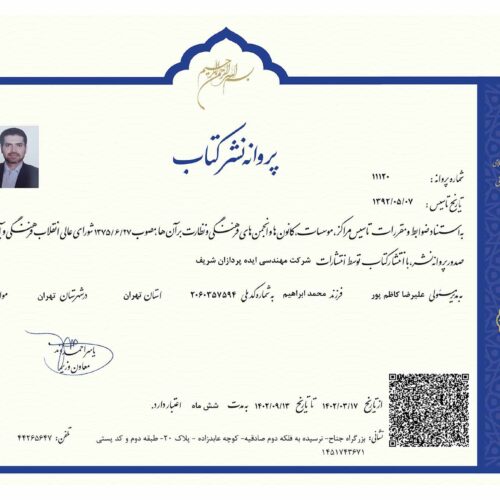 بسم الله الرحمن الرحیم
پروانه نشر کتاب
شماره پروانه : ۱۱۱۲۰
تاریخ تاسیس : ۱۳۹۲/۰۵/۰۷
به استناد ضوابط و مقررات تاسیس مراکز، موسسات، کانون ها و انجمن های فرهنگی و نظارت بر آن ها، مصوب ۱۳۷۵/۶/۲۷ شورای عالی انقلاب فرهنگی و
صدور پروانه نشر، با انتشار کتاب توسط انتشارات شرکت مهندسی ایده پردازان شریف
به مدیر مسئولی علیرضا کاظم پور فرزند محمد ابراهیم به شماره کد ملی ۲۰۶۰۳۵۷۵۹۴ استان تهران در شهرستان تهران
یاسر احمدوند
معاون وزیر
از تاریخ ۱۴۰۲/۰۳/۱۷ تا تاریخ ۱۴۰۲/۰۹/۱۳ به مدت شش ماه اعتبار دارد.
نشانی: بزرگراه جناح- نرسیده به فلکه دوم صادقیه- کوچه عابدزاده - پلاک ۲۰- طبقه دوم و کد پستی
۱۴۵۱۷۴۳۶۷۱
تلفن: ۴۴۲۶۵۶۴۷